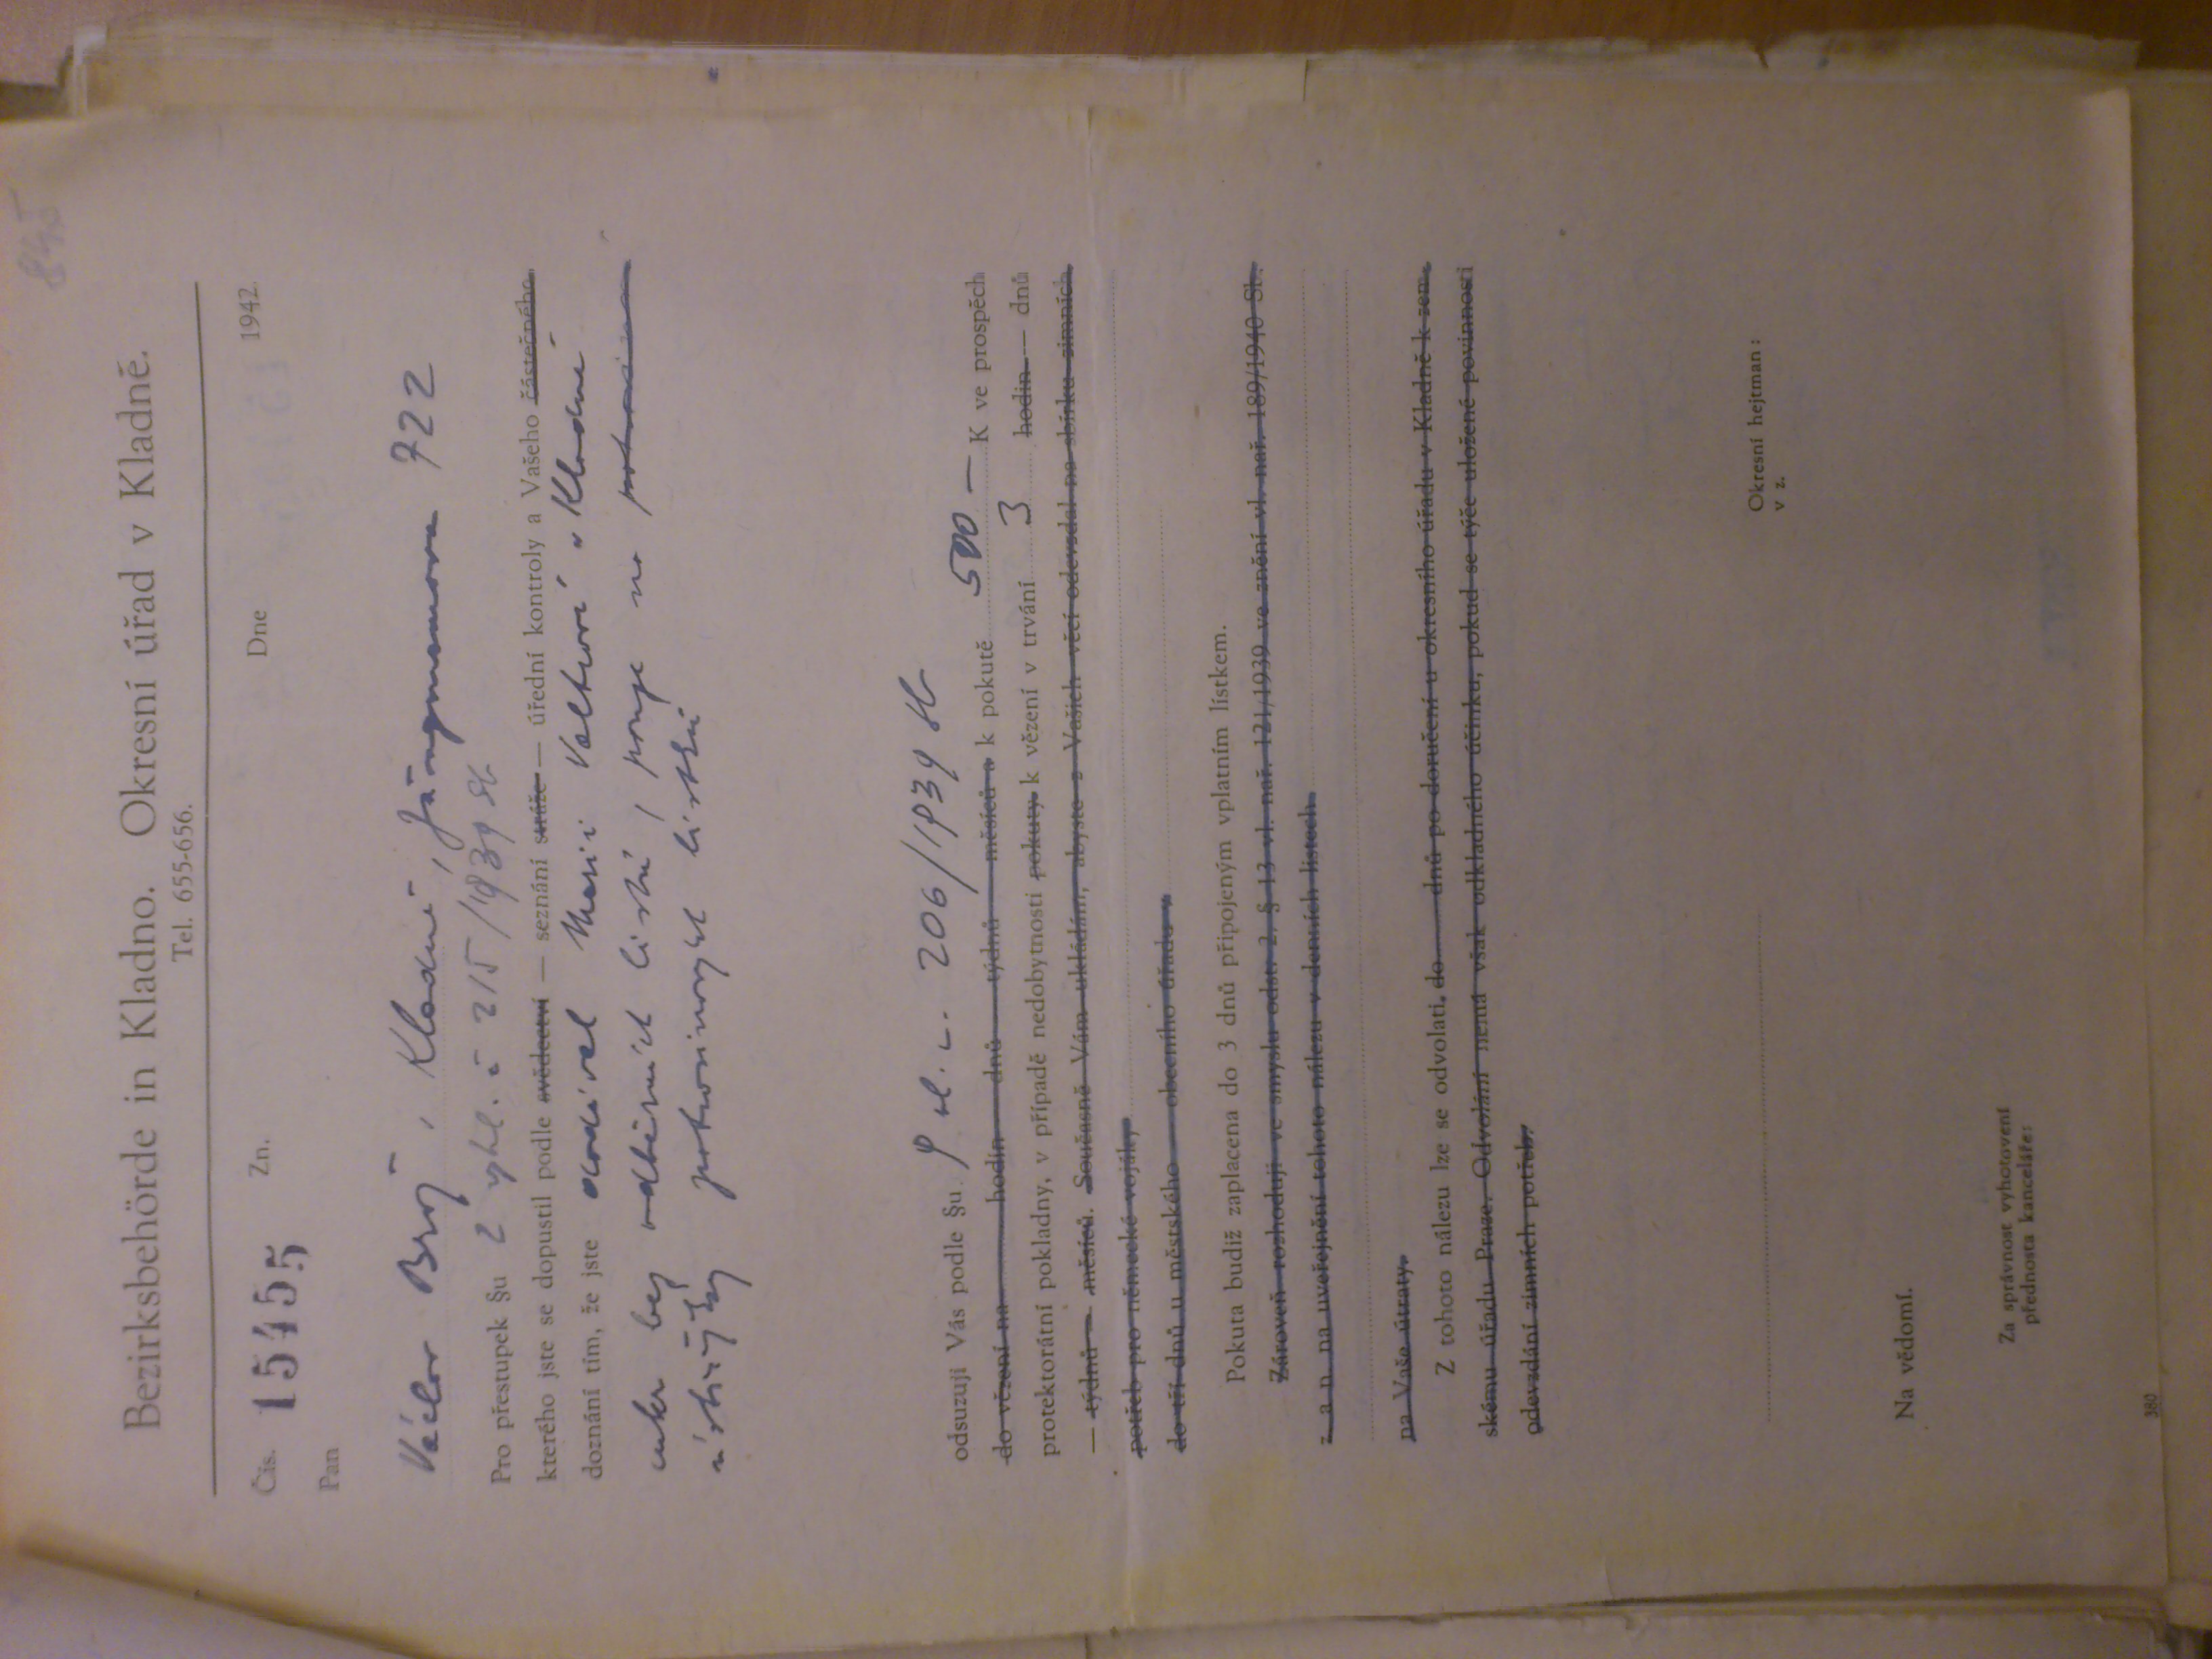 845
Bezirksbehörde in Kladno. Okresní úřad v Kladně.
Tel. 655-656.
Čís. 15455 Zn. Dne 1942.
Pan
Václav Brož, Kladně, Jungmannova 722
Pro přestupek §u 2 vyhl. č 215/1939 Sb
kterého jste se dopustil podle svědectví — seznání stráže — úřední kontroly a Vašeho částečného
doznání tím, že jste dodával Marii v Kladně
cukr bez odběrních lístků, pouze na potravinov
ústřižky potravinových lístků
odsuzuji Vás podle §u 206/1939 Sb
do vězení na hodin dnů týdnů měsíců a k pokutě 500 — K ve prospěch
protektorátní pokladny, v případě nedobytnosti pokuty k vězení v trvání 3 hodin — dnů
— týdnů — měsíců. Současně Vám ukládám, abyste z Vašich věcí odevzdal na sbírku zimních
potřeb pro německé vojáky
do tří dnů u městského — obecního úřadu v
Pokuta budiž zaplacena do 3 dnů připojeným vplatním lístkem.
Zároveň rozhoduji ve smyslu odst. 2. § 13 vl. nař. 121/1939 ve znění vl. nař. 189/1940 Sb.
z. a n. na uveřejnění tohoto nálezu v denních listech
na Vaše útraty.
Z tohoto nálezu lze se odvolati. do dnů po doručení u okresního úřadu v Kladně k zem-
skému úřadu Praze. Odvolání nemá však odkladného účinku, pokud se týče uložené povinnosti
odevzdání zimních potřeb.
Okresní hejtman:
v z.
Na vědomí.
Za správnost vyhotovení
přednosta kanceláře:
380